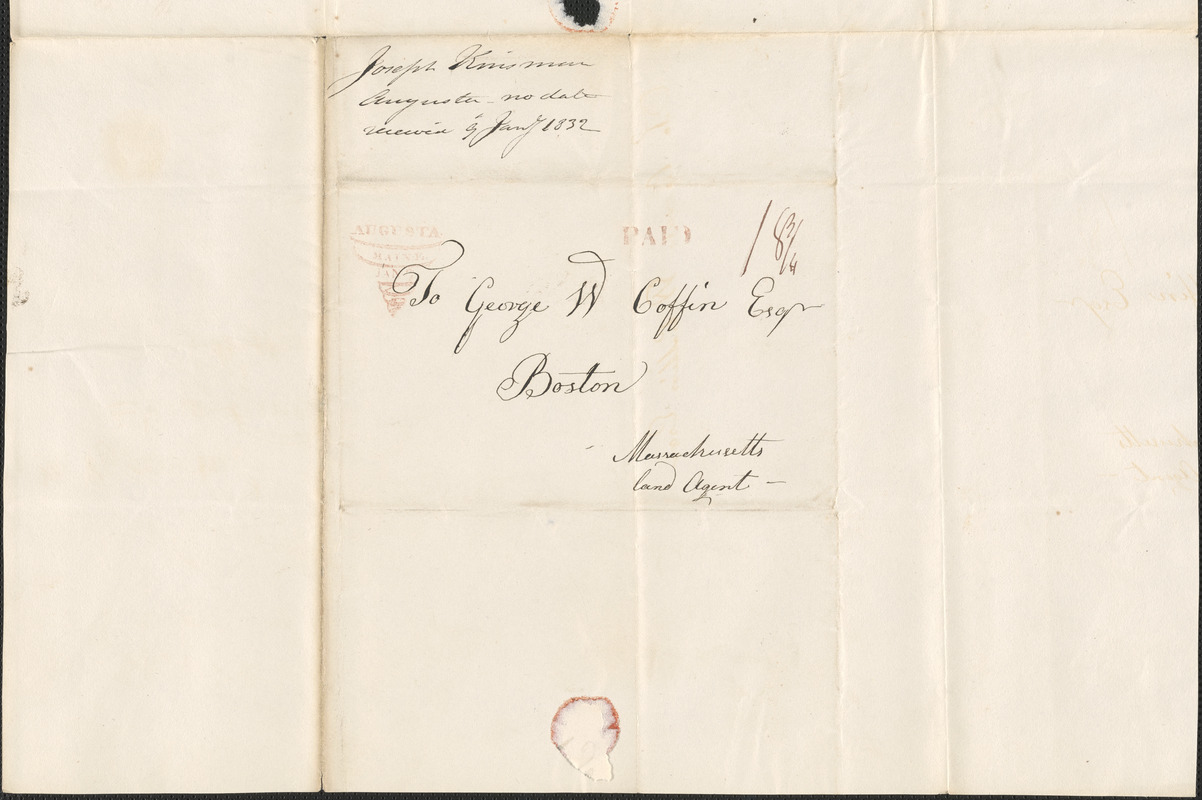 Joseph Kinsman
Augusta - no date
received 9 Jany 1832
AUGUSTA
MAINE
JAN
PAID
18 3/4
To George W Coffin Esqr
Boston
Massachusetts
land Agent -